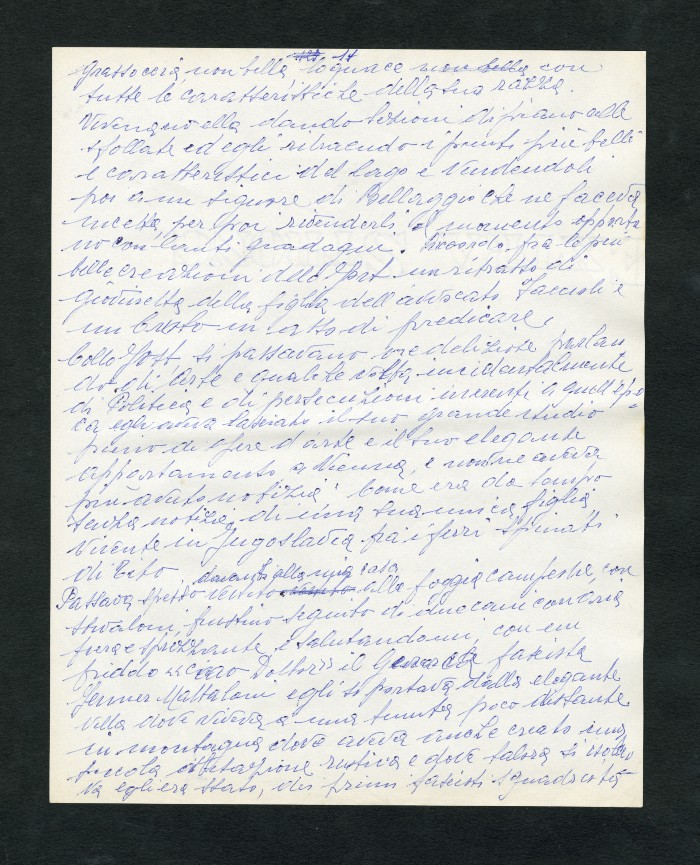 17
grassoccia, non bella, loquace non bella con
tutte le caratteristiche della sua razza.
Vivevano ella dando lezioni di piano alle
sfollate ed egli ritraendo i punti più belli
e caratteristici del lago e vendendoli
poi a un signore di Bellaggio che ne faceva
incetta, per poi rivenderli al momento opportu
no con lauti guadagni. Ricordo fra le più
belle creazioni dello Jost un ritratto di
giovinetta della figlia dell'avvocato Faccioli e
un busto in atto di predicare,
Collo Jost si passavano ore deliziose parlan
do di Arte e qualche volta incidentalmente
di Politica e di persecuzioni inerenti a quell'epo=
ca egli aveva lasciato il suo grande studio
pieno di opere d'arte e il suo elegante
appartamento a Vienna, e non ne aveva
più avuto notizia come era da tempo
senza notizie di una sua unica figlia
vivente in Jugoslavia fra i ferri spinati
di Tito
davanti alla mia casa
Passava spesso vestito alla foggia campestre, con
stivaloni, frustino seguito di due cani con aria
fiera e sprezzante, e salutandomi, con un
friddo "ciao Dottor" il Gerarca fascista
Jenner Mattaloni egli si portava dalla elegante
villa dove viveva a una tenuta poco distante
in montagna dove aveva anche creato una
piccola abitazione rustica e dove talora si isola
va egli era stato, dei primi fascisti squadristi